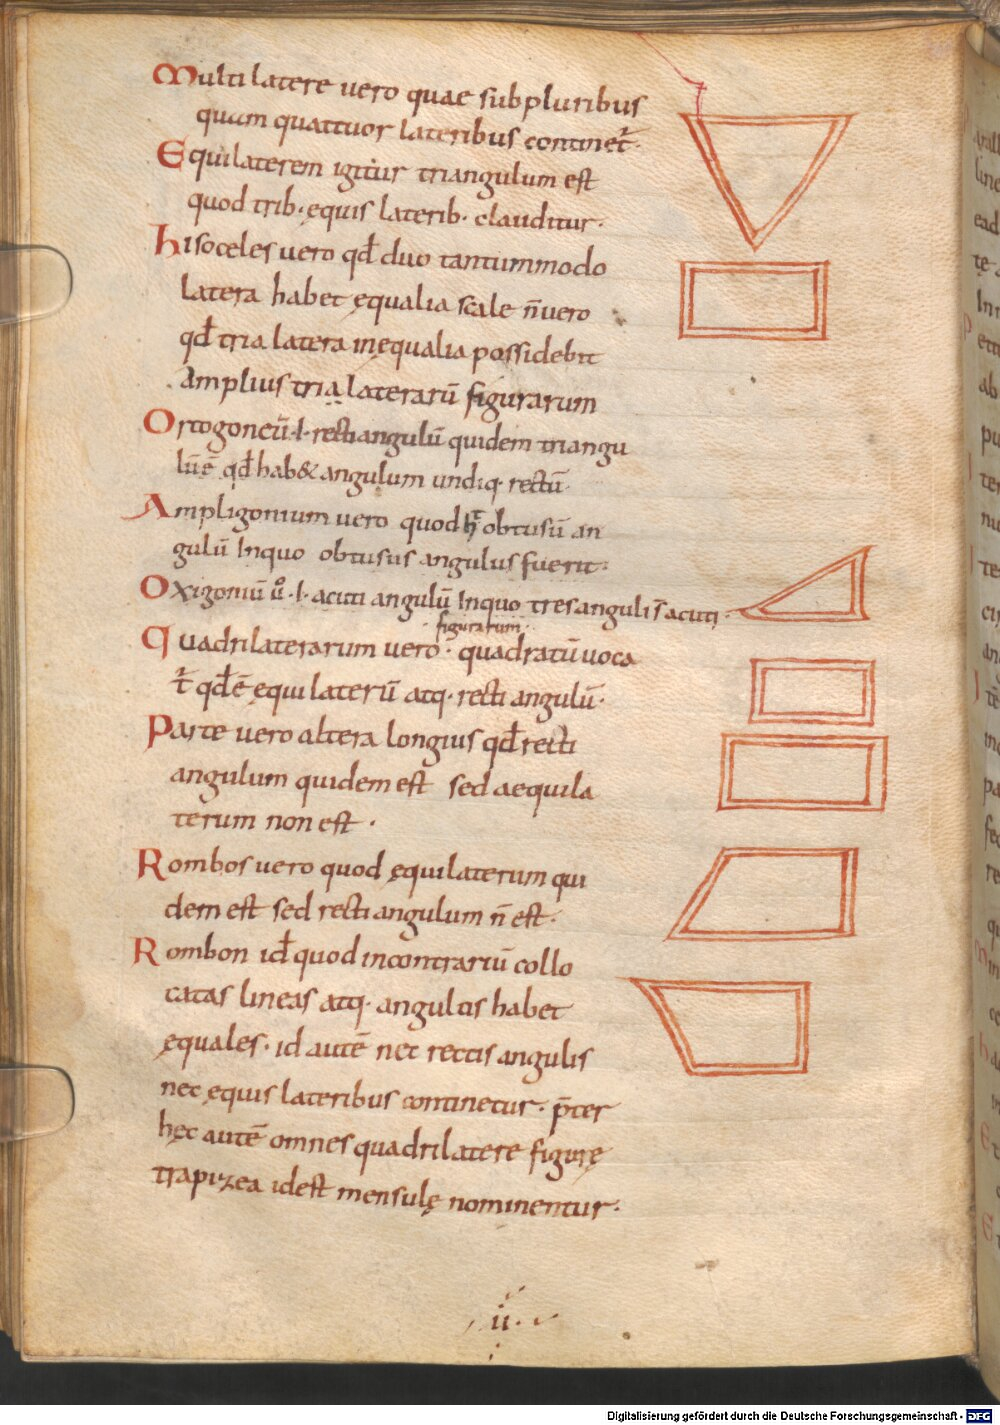 Multilatere vero quae subpluribus
quam quattuor lateribus continet̄·
Equilaterem igitur triangulum est
quod trib· ęquis laterib· clauditur·
hisoceles vero qđ duo tantummodo
latera habet ęqualia scale n̄ vero
qđ tria latera inęqualia possidebit
Amplius tria laterarū figurarum
Ortogoneū ·l· rectiangulū quidem triangu
lū ē qđ hab& angulum undiq· rectū·
Ampligonium vero quod h̄t obtusū an
gulū Inquo obtusus angulus fuerit·
Oxigoniū ůo ·l· acuti angulū Inquo tres anguli s̄ acuti·
figurarum·
Quadrilaterarum vero· quadratū uoca
t̄ qđ ē ęquilaterū atq· recti angulū·
Parte vero altera longius qđ recti
angulum quidem est sed aequila
terum non est·
Rombos vero quod ęquilaterum qui
dem est sed recti angulum n̄ est·
Rombon iđ quod incontrariū collo
catas lineas atq· angulis habet
ęquales· id autē nec rectis angulis
nec ęquis lateribus continetur· p̄ter
hęc autē omnes quadrilatere figurę
trapizea idest mensulę nominentur·
·ii·
Digitalisierung gefördert durch die Deutsche Forschungsgemeinschaft - DFG